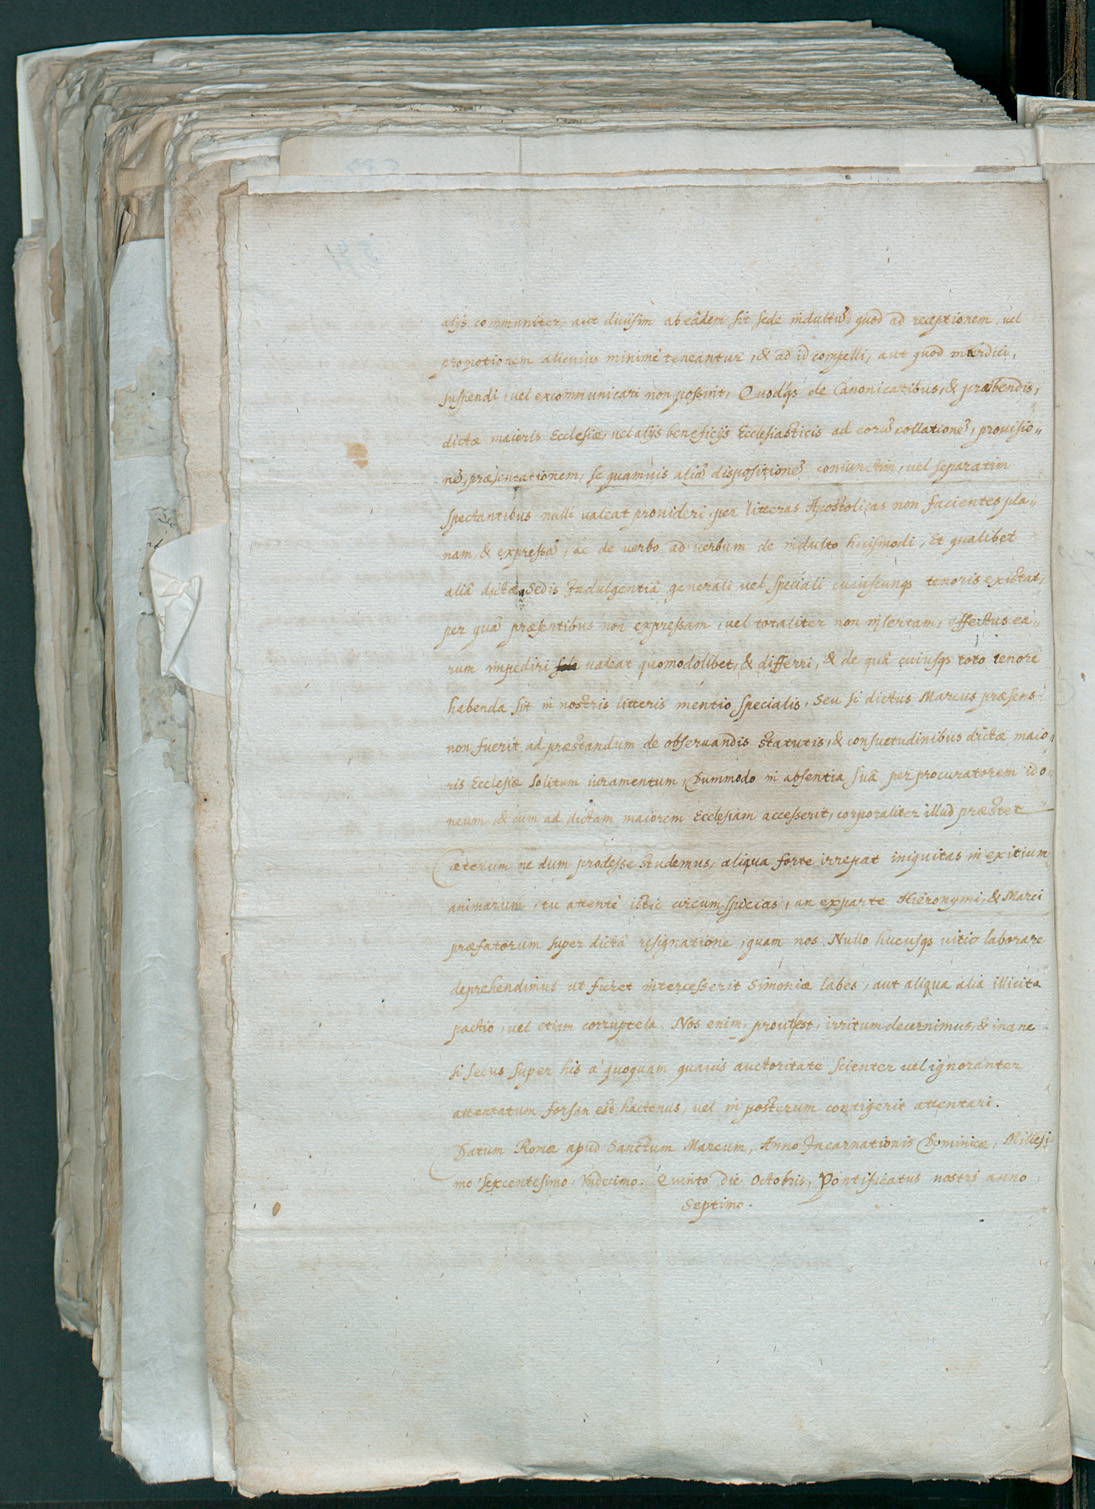 alijs communiter, aut diuisim ab eâdem sit sede indultũ, quod ad receptionem, vel
promotionem alicuius minimè teneantur, & ad id compelli, aut quod interdici,
suspendi, vel excommunicari non possint, Quodq́s de Canonicatibus, & præbendis,
dictæ maioris Ecclesiæ, vel alijs beneficijs Ecclesiasticis ad eorũ collationẽ, prouisio„
nẽ, præsentationem, se quamuis aliã dispositionẽ coniunctim, vel separatim
spectantibus nulli valeat prouideri per litteras Apostolicas non facientes pla„
nam & expressã, ac de verbo ad verbum de indulto huiusmodi, Et qualibet
aliâ dictæ Sedis Indulgentiâ generali vel speciali cuiuscunqs tenoris existat,
per quã præsentibus non expressam, vel totaliter non insertam, effectus ea„
rum impediri valeat quomodolibet, & differri, & de quâ cuiusqs toto tenore
habenda sit in nostris litteris mentio specialis, Seu si dictus Marcus præsens
non fuerit ad præstandum de obseruandis statutis, & consuetudinibus dictæ maio„
ris Ecclesiæ solitum iuramentum, Dummodo in absentia suâ per procuratorem ido„
neum, & cum ad dictam maiorem Ecclesiam accesserit, corporaliter illud præstet
Cæterum ne dum prodesse studemus, aliqua forte irrepat iniquitas in exitium
animarum, tu attentè istic circumspicias, an ex parte Hieronymi, & Marci
præfatorum super dictâ resignatione, quam nos Nullo hucusqs vitio laborare
deprehendimus ut furet intercesserit Simoniæ labes, aut aliqua alia illicita
pactio, vel etiam corruptela. Nos enim, prout est, irritum decernimus, & inane
si secus super his à quoquam quauis auctoritate scienter vel ignoranter
attentatum forsan est hactenus, vel in posterum contigerit attentari.
Datum Romæ apud Sanctum Marcum, Anno Incarnationis Dominicæ, Millesi
mo sexcentesimo undecimo. Quinto die Octobris, Pontificatus nostri anno
Septimo.